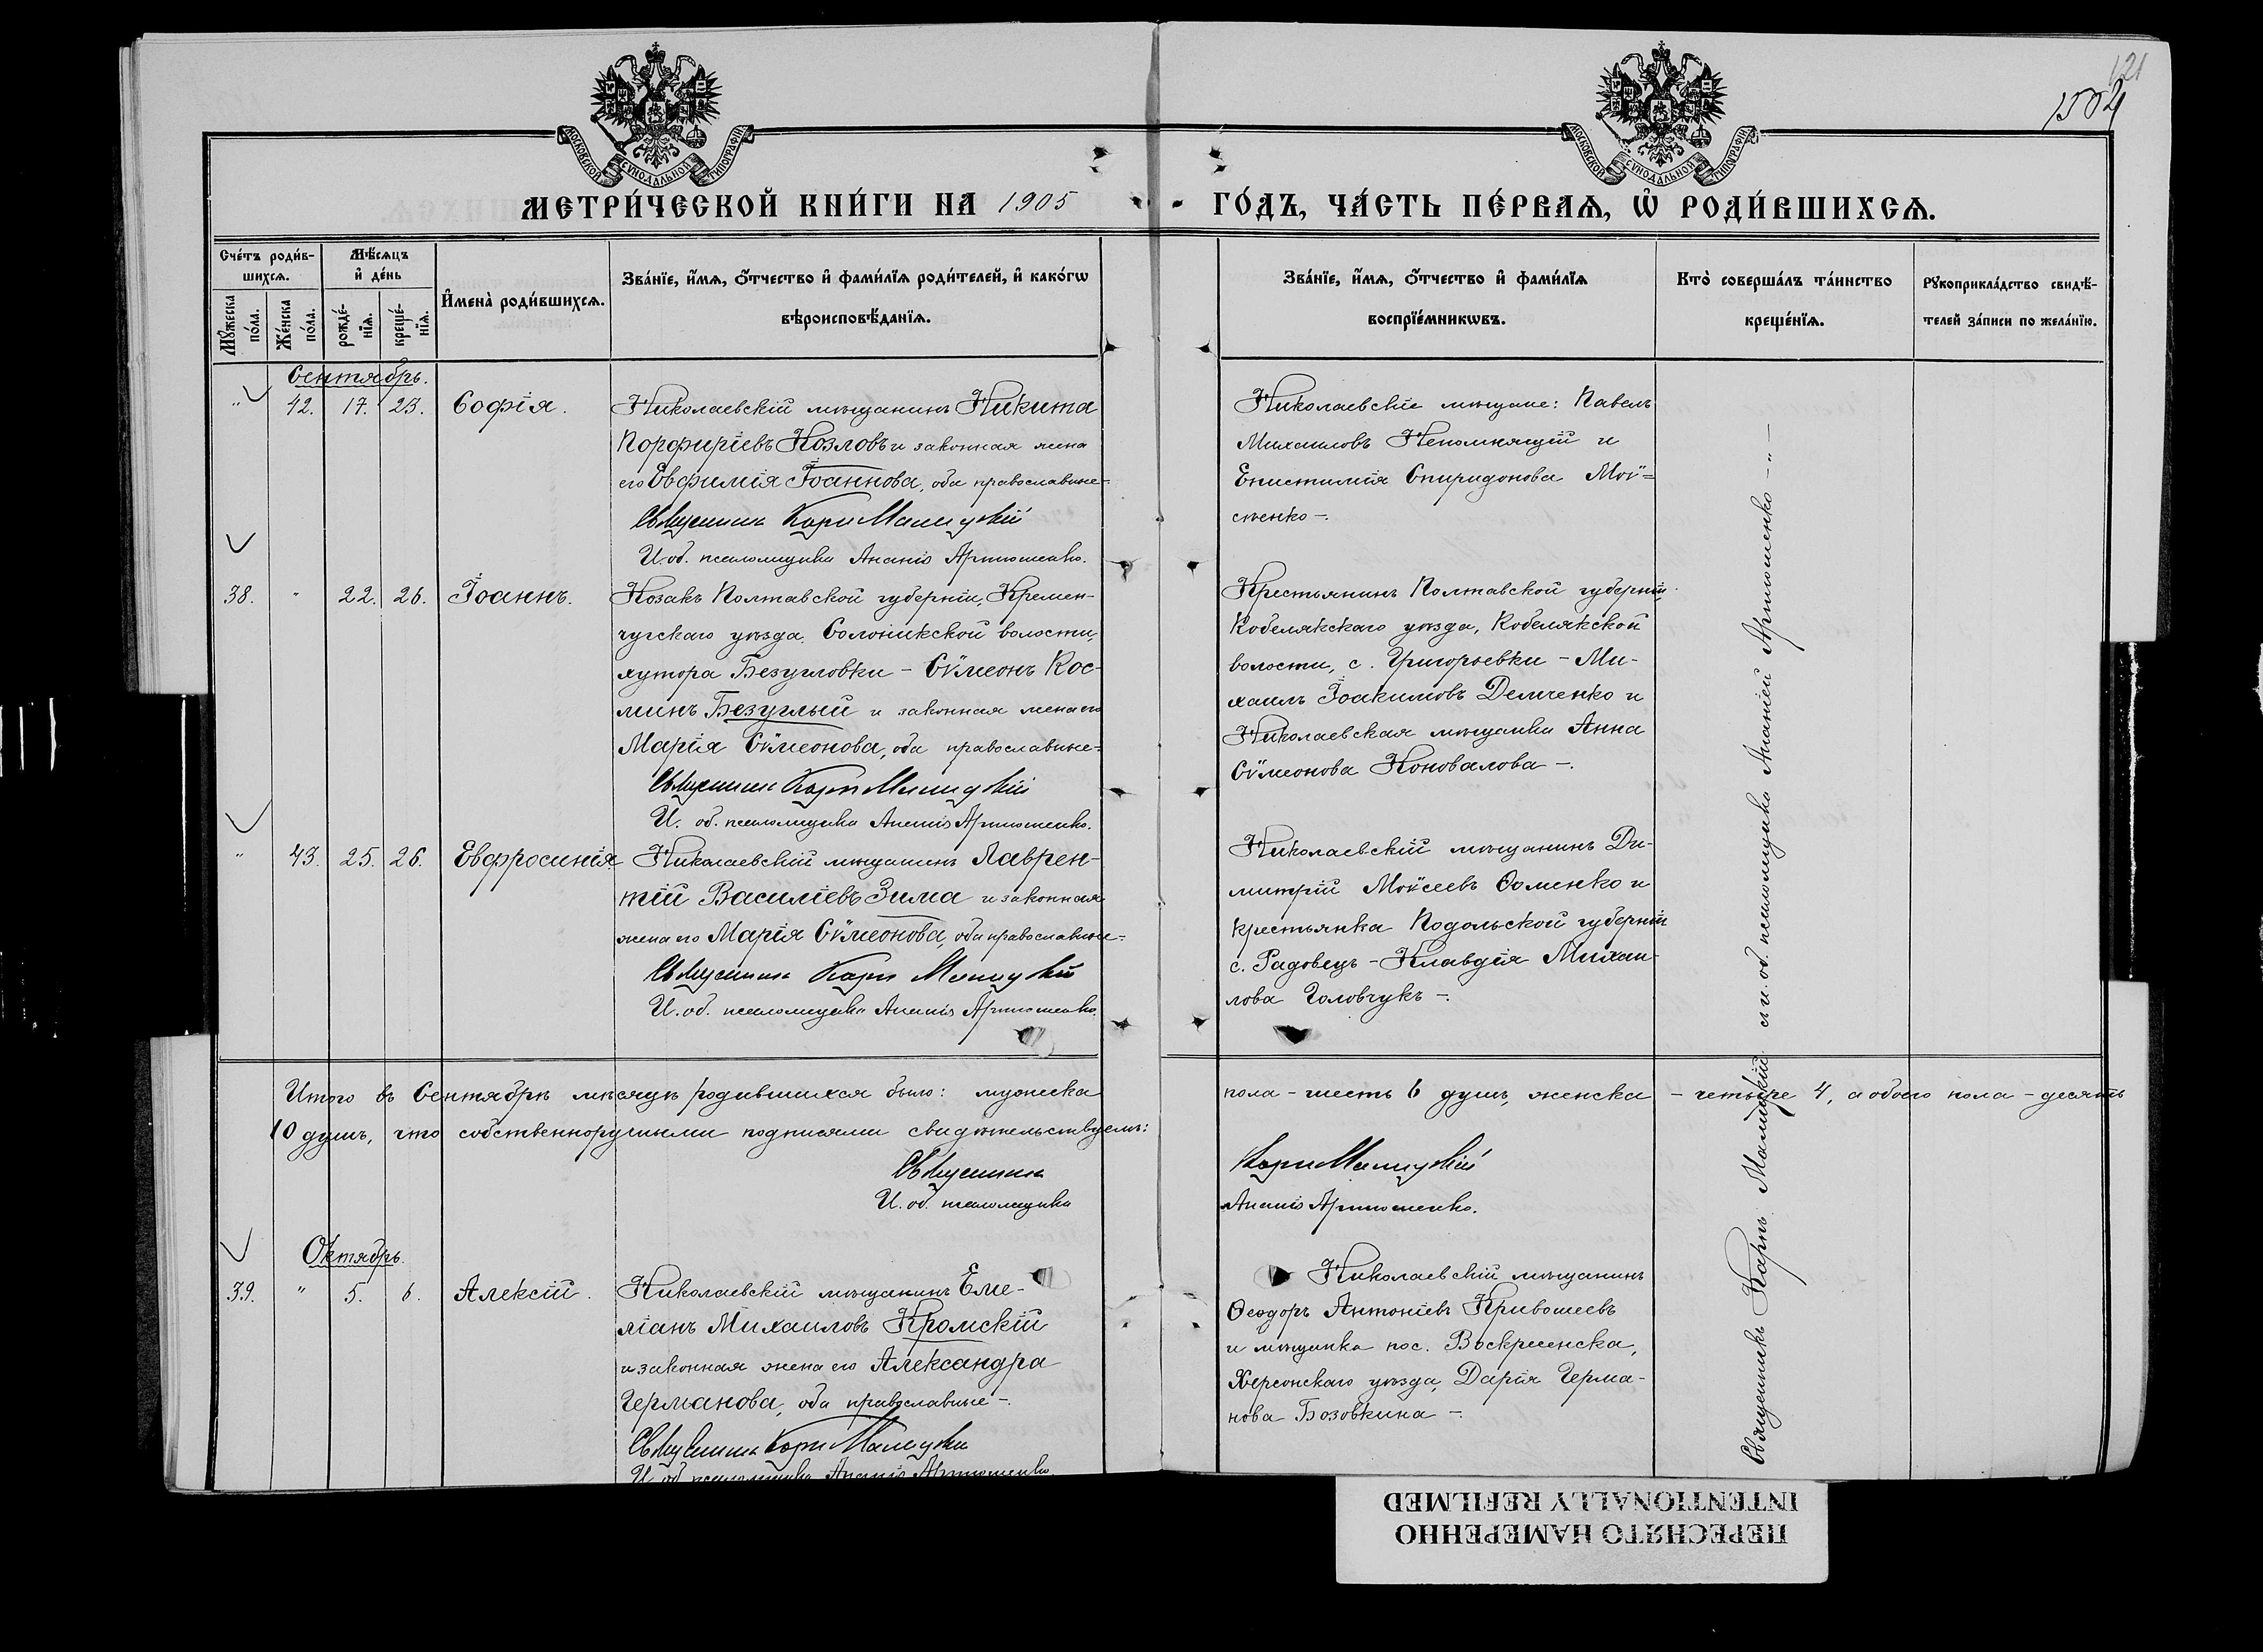 121
1502
МОСКОВСКОЙ СУНОДАЛЬНОЙ ТИПОГРАФІИ
МОСКОВСКОЙ СУНОДАЛЬНОЙ ТИПОГРАФІИ
МЕТРИ́ЧЕСКОЙ КНИ́ГИ НА 1905
ГО́ДЪ, ЧА́СТЬ ПЕ́РВАѦ, Ѡ҆ РОДИ́ВШИХСѦ.
Сче́тъ роди́в-
шихсѧ.
Мꙋ́жеска по́ла.
Же́нска по́ла.
Мѣ́сѧцъ
и҆ де́нь
рожде́-
нїѧ.
креще́-
нїѧ.
И҆мена̀ роди́вшихсѧ.
Зва́нїе, и҆́мѧ, ѻ҆́тчество и҆ фами́лїѧ роди́телей, и҆ како́гѡ
вѣроисповѣ́данїѧ.
Зва́нїе, и҆́мѧ, ѻ҆́тчество и҆ фами́лїѧ
воспрїе́мникѡвъ.
Кто̀ соверша́лъ та́инство
креще́нїѧ.
Рꙋкоприкла́дство свидѣ́-
телей за́писи по жела́нїю.
Сентябрь.
" 42. 17. 23. Софія.
Николаевскій мѣщанинъ Никита
Порфиріевъ Козловъ и законная жена
его Евфимія Іоаннова, оба православные-
Священникъ Карпъ Малицкій
И. об. псаломщика Ананій Артюшенко.
Николаевскіе мѣщане: Павелъ
Михаиловъ Непомнящій и
Епистимія Спиридонова Мой=
сѣенко-.
38. " 22. 26. Іоаннъ.
Козакъ Полтавской губерніи, Кремен-
чугскаго уѣзда, Солоникской волости,
хутора Безугловки - Сѵмеонъ Кос-
минъ Безуглый и законная жена его
Марія Сѵмеонова, оба православные-
Священникъ Карпъ Малицкій
И. об. псаломщика Ананій Артюшенко.
Крестьянинъ Полтавской губерніи,
Кобелякскаго уѣзда, Кобелякской
волости, с. Григорьевки - Ми-
хаилъ Іоакимовъ Демченко и
Николаевская мѣщанка Анна
Сѵмеонова Коновалова -.
" 43. 25. 26. Евфросинія.
Николаевскій мѣщанинъ Лаврен-
тій Василіевъ Зима и законная
жена его Марія Сѵмеонова, оба православные-.
Священникъ Карпъ Малицкій
И. об. псаломщика Ананій Артюшенко.
Николаевскій мѣщанинъ Ди-
митрій Моѵсеевъ Ѳоменко и
крестьянка Подольской губерніи
с. Радовецъ - Клавдія Михаи-
лова Головчукъ -.
Итого въ Сентябрѣ мѣсяцѣ родившихся было: мужеска
пола - шесть 6 душъ, женска - четыре 4, а обоего пола - десять
10 душъ, что собственноручными подписями свидѣтельствуемъ:
Священникъ
Карпъ Малицкій
И. об. псаломщика
Ананій Артюшенко.
Октябрь.
39. " 5. 6. Алексій.
Николаевскій мѣщанинъ Еме-
ліанъ Михаиловъ Кромскій
и законная жена его Александра
Германова, оба православные -.
Священникъ Карпъ Малицкій
И. об. псаломщика Ананій Артюшенко.
Николаевскій мѣщанинъ
Ѳеодоръ Антоніевъ Кривошеевъ
и мѣщанка пос. Воскресенска,
Херсонскаго уѣзда, Дарія Герма-
нова Бозовкина -.
Священникъ Карпъ Малицкій съ и. об. псаломщика Ананіей Артюшенко - " -
INTENTIONALLY REFILMED
ПЕРЕСНЯТО НАМЕРЕННО